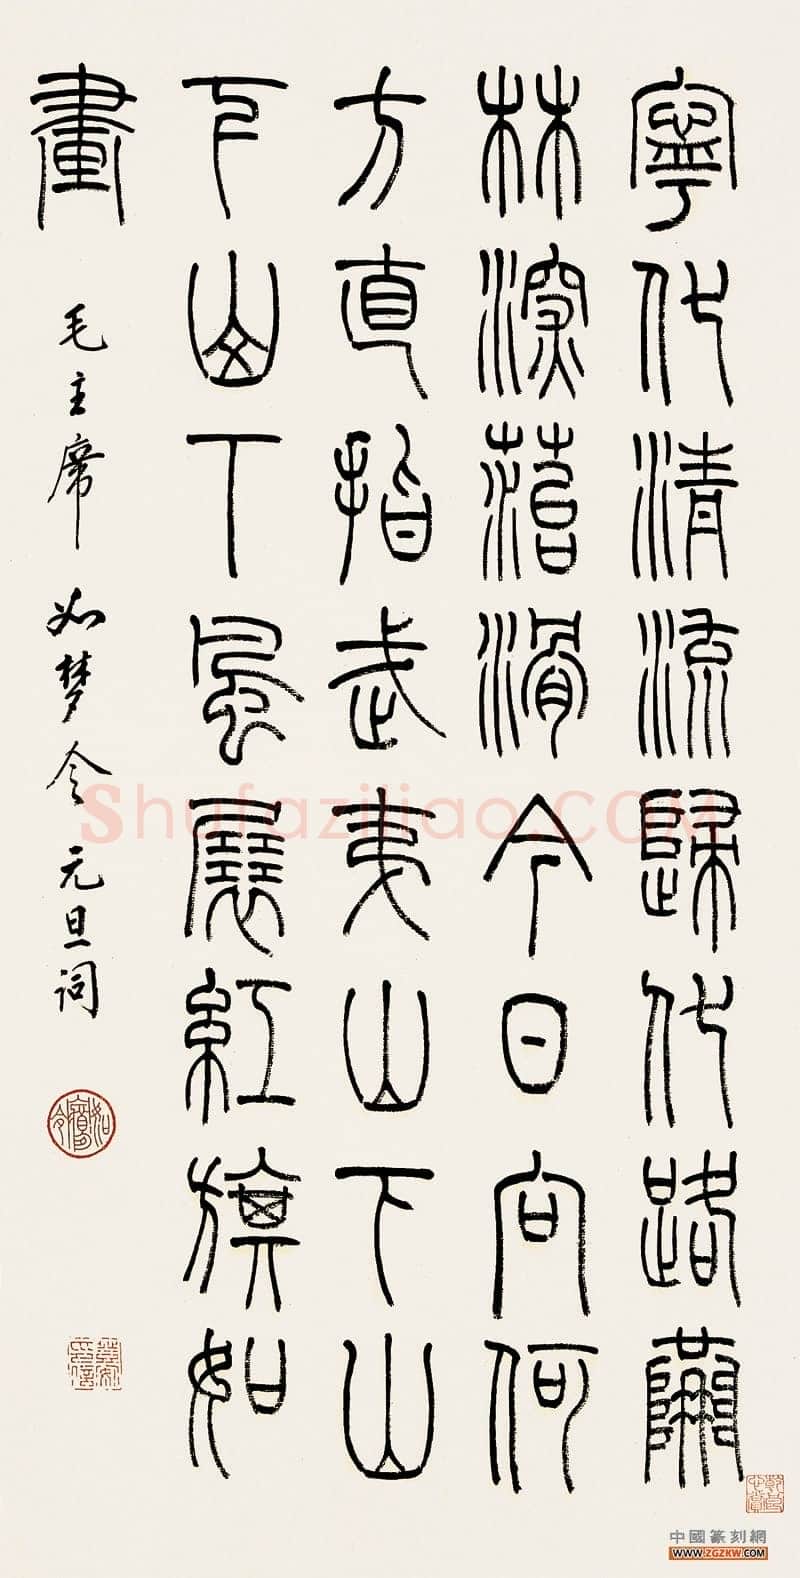 寧化清流歸化路隘
林深菭滑今日向何
方直指武夷山下山
下山下風展紅旗如
畫
毛主席如梦令元旦词
Shufaziliao.COM
中國篆刻網
WWW.ZGZKW.COM